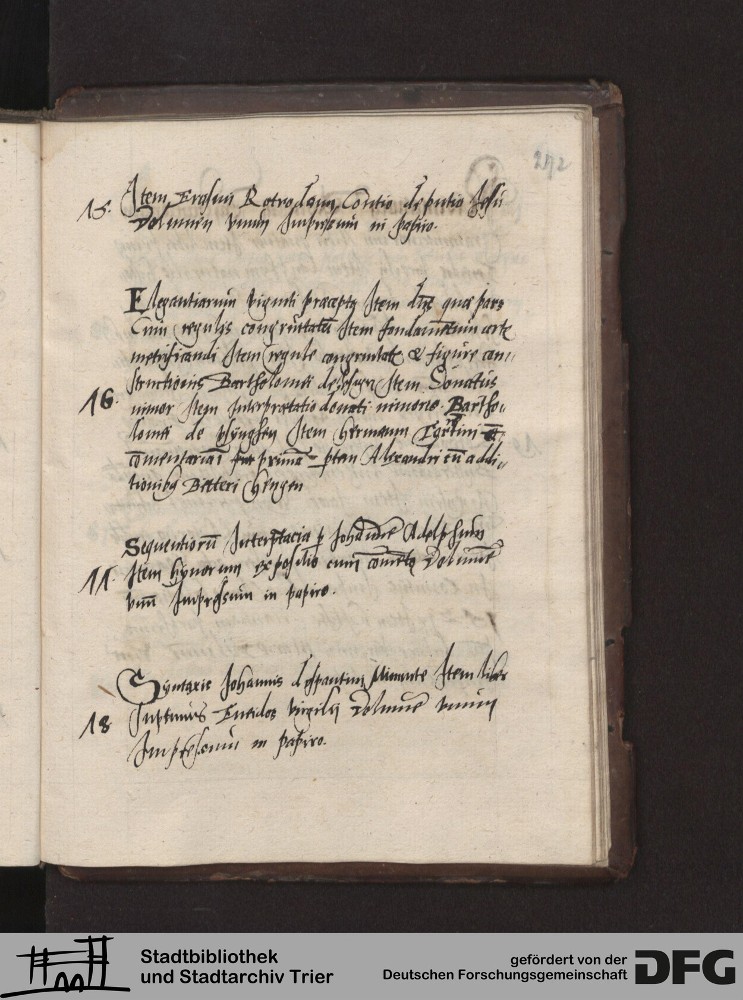 272
15. Item Erasmi Rotrodami Contio de putio Jesu
Volumen vnum Impressum in papiro.
Elegantiarum viginti præcepta Item que pars
Cum regulis congruitatum Item fundamentum arte
metrificandi Item regule congruitatis & figure con„
16. structionis Bartholomei Item Donatus
minor Item Interpretatio donati minoris Bartho„
lomei de Item Hermann
comentarium primam ptem Alexandri cū addi„
tionibus
Sequentiorū Interptacia p Johannē Adolphum
17. Item hymnorum expositio cum Volumē
vnū Impressum in papiro.
Syntaxis Johannis despauterii Item liber
18 Septimus Eneidos Virgilij Volumē vnum
Impressum in papiro.
Stadtbibliothek
und Stadtarchiv Trier
gefördert von der
Deutschen Forschungsgemeinschaft
DFG